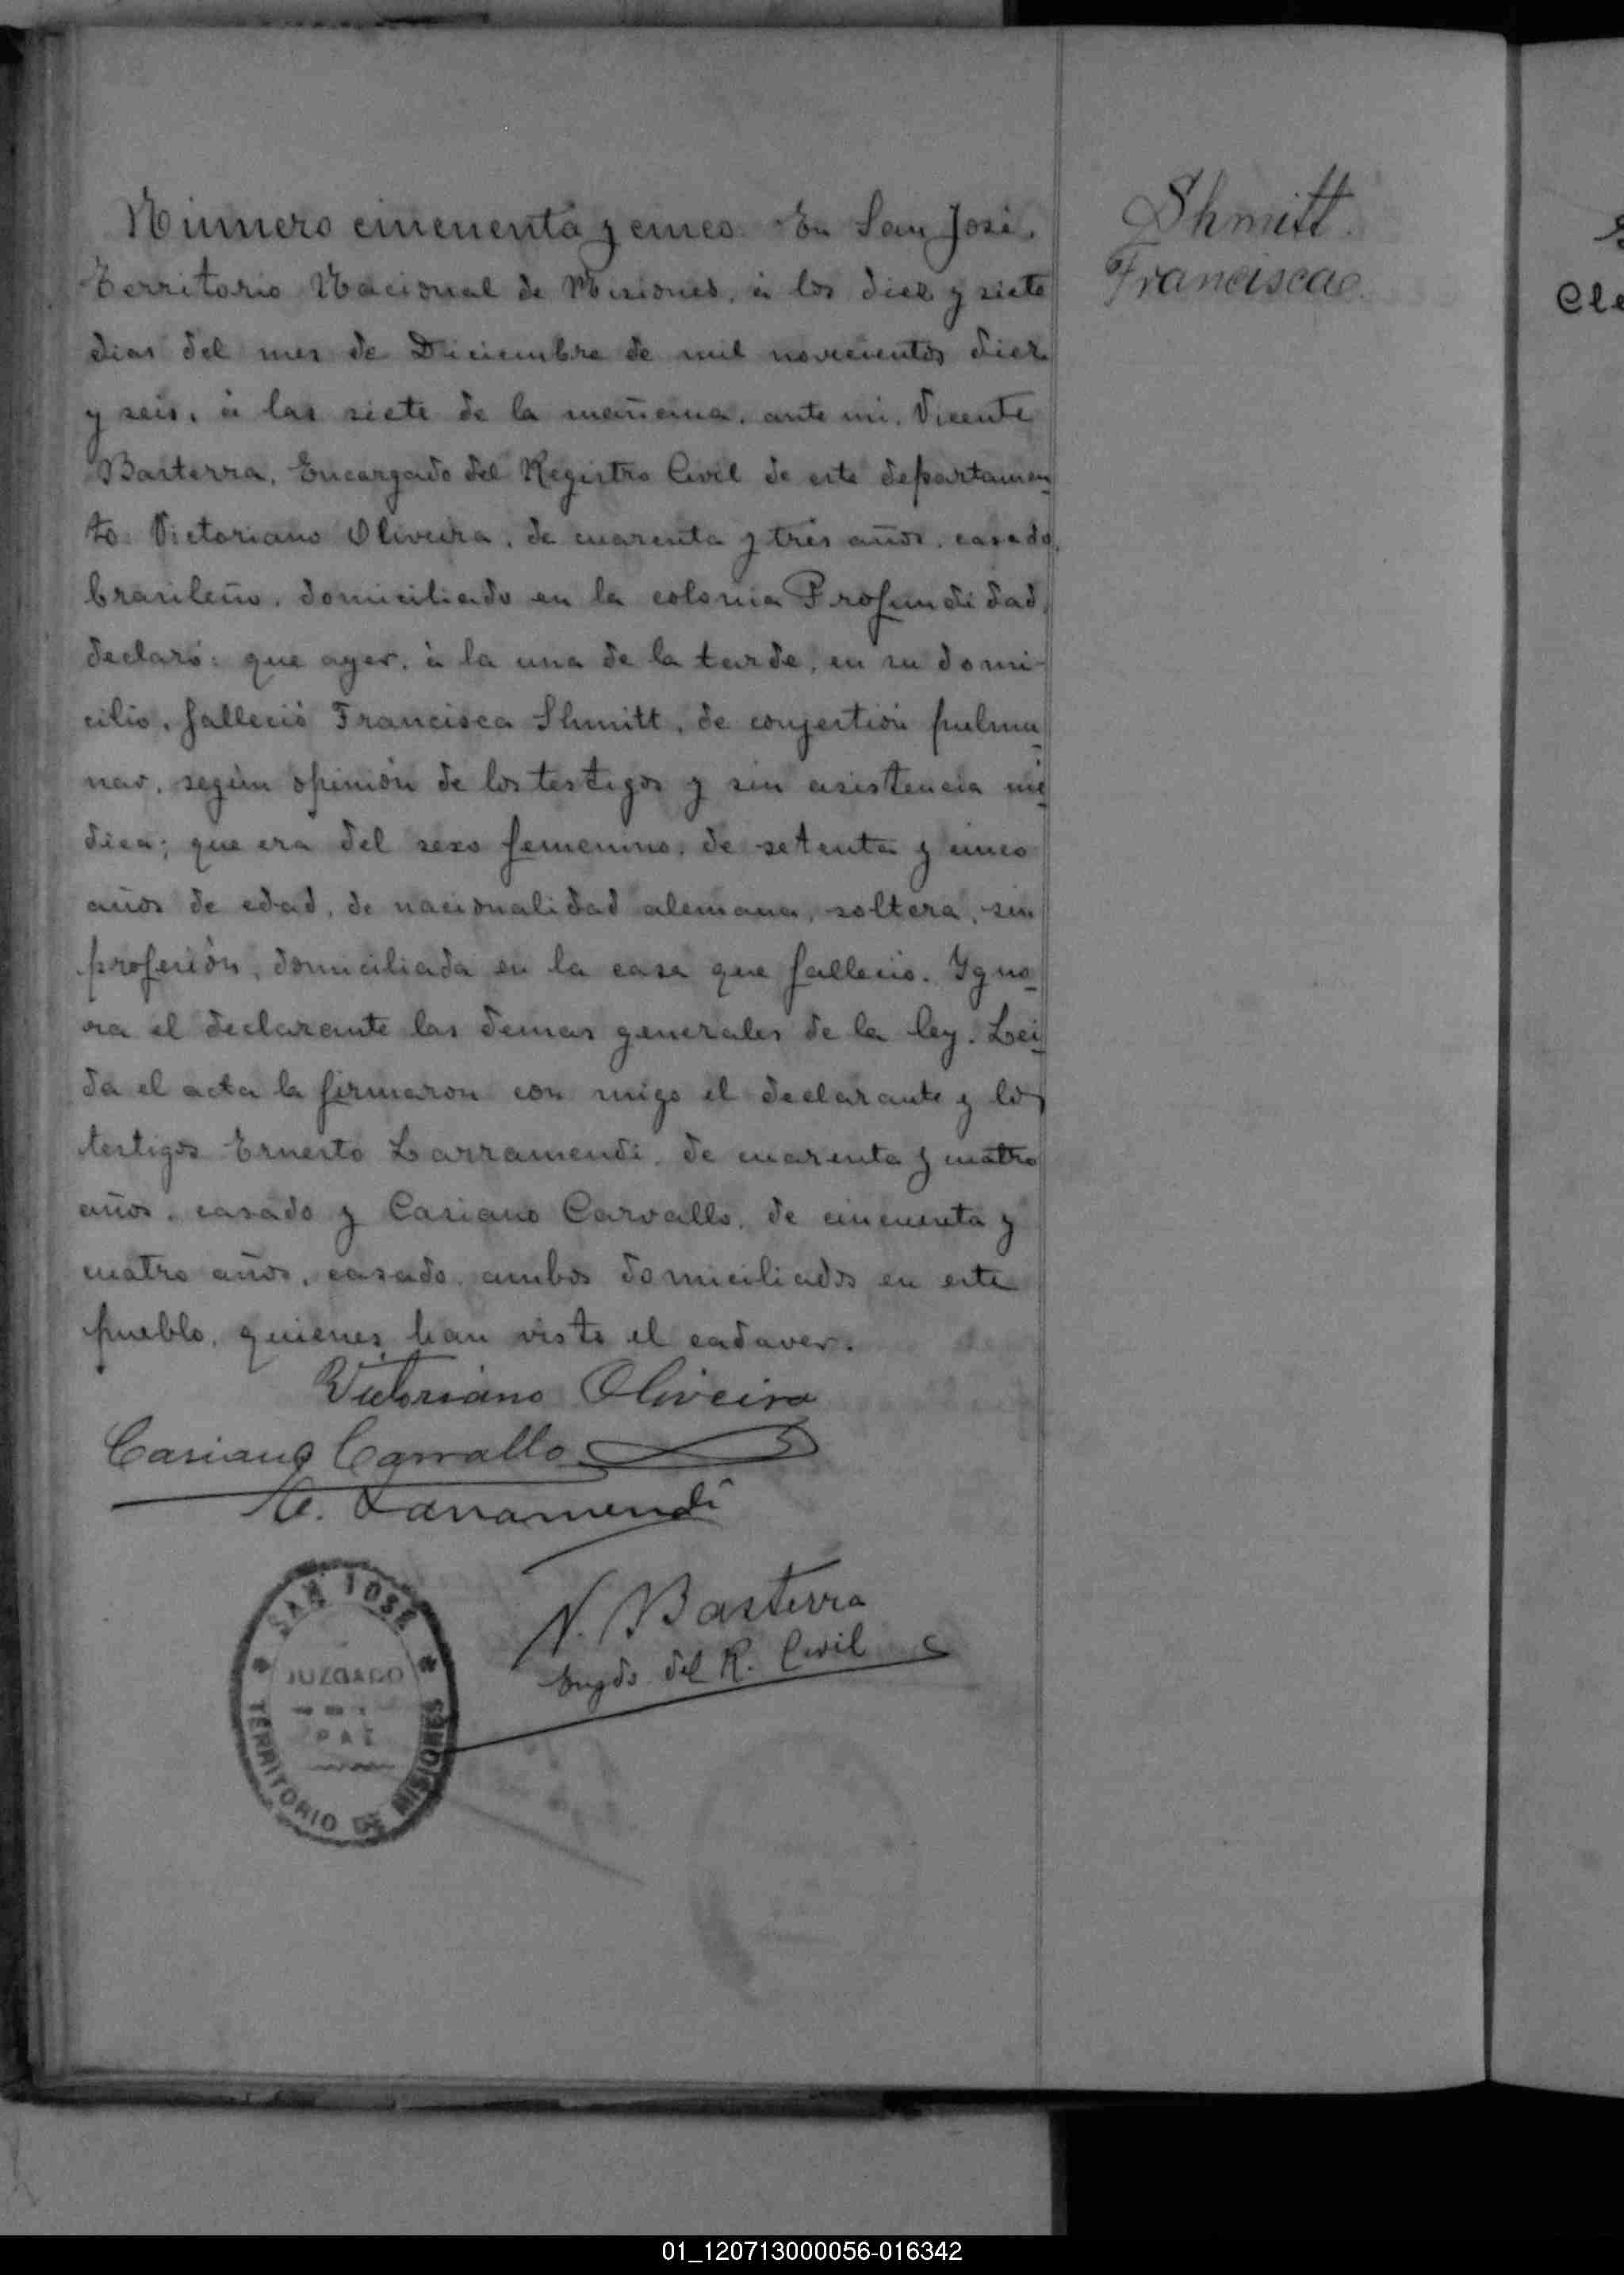 Número cincuenta y cinco. En San José,
Territorio Nacional de Misiones, á los diez y siete
dias del mes de Diciembre de mil novecientos diez
y seis, á las siete de la mañana, ante mi, Vicente
Basterra, Encargado del Registro Civil de este departamen
to: Victoriano Oliveira, de cuarenta y tres años, casado,
brasileño, domiciliado en la colonia Profundidad,
declaró: que ayer, á la una de la tarde, en su domi-
cilio, falleció Francisca Shmitt, de conjestión pulmo
nar, según opinión de los testigos y sin asistencia mé
dica; que era del sexo femenino, de setenta y cinco
años de edad, de nacionalidad alemana, soltera, sin
profesión, domiciliada en la casa que falleció. Ygno
ra el declarante las demas generales de la ley. Lei
da el acta la firmaron con migo el declarante y los
testigos Ernesto Larramendi, de cuarenta y cuatro
años, casado y Casiano Carvallo, de cincuenta y
cuatro años, casado, ambos domiciliados en este
pueblo, quienes han visto el cadaver.
Victoriano Oliveira
Casiano Carvallo
E. Larramendi
V. Basterra
Engdo del R. Civil
SAN JOSÉ
JUZGADO
DE
PAZ
TERRITORIO DE MISIONES
Shmitt.
Francisca
Cle
01_120713000056-016342